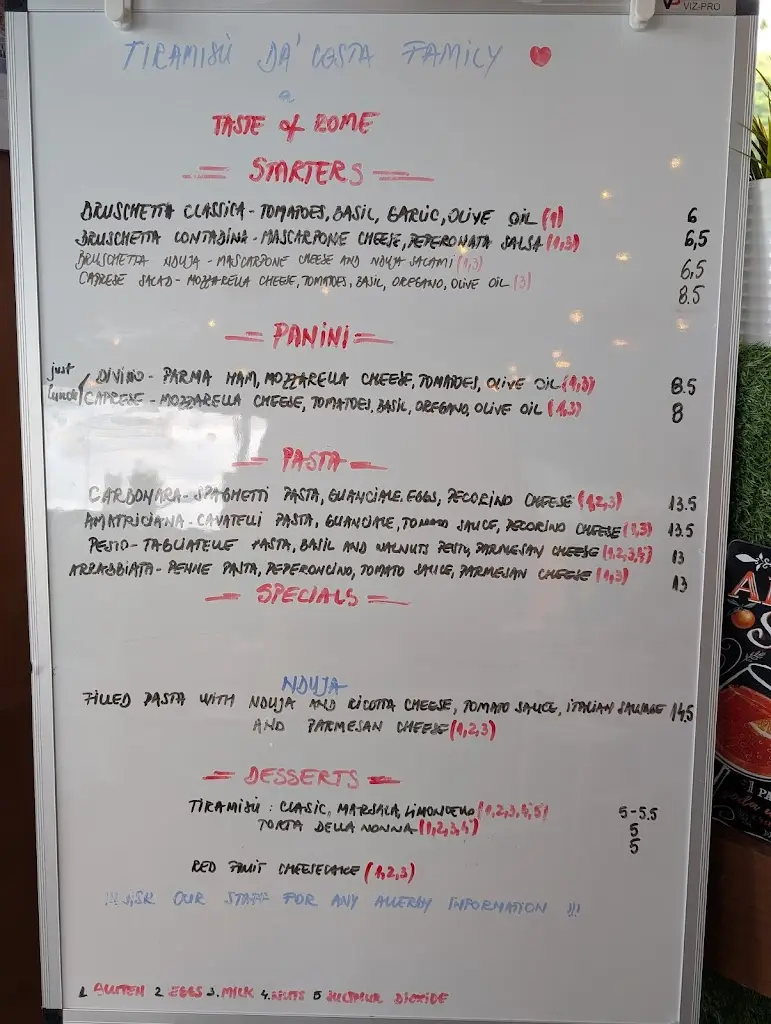 VIZ-PRO
TIRAMISÙ DA' COSTA FAMILY
a
TASTE of ROME
STARTERS
BRUSCHETTA CLASSICA - TOMATOES, BASIL, GARLIC, OLIVE OIL (1) 6
BRUSCHETTA CONTADINA - MASCARPONE CHEESE, PEPERONATA SALSA (1,3) 6,5
BRUSCHETTA NDUJA - MASCARPONE CHEESE AND NDUJA SALAMI (1,3) 6,5
CAPRESE SALAD - MOZZARELLA CHEESE, TOMATOES, BASIL, OREGANO, OLIVE OIL (3) 8.5
PANINI
just lunch
DIVINO - PARMA HAM, MOZZARELLA CHEESE, TOMATOES, OLIVE OIL (1,3) 8.5
CAPRESE - MOZZARELLA CHEESE, TOMATOES, BASIL, OREGANO, OLIVE OIL (1,3) 8
PASTA
CARBONARA - SPAGHETTI PASTA, GUANCIALE, EGGS, PECORINO CHEESE (1,2,3) 13.5
AMATRICIANA - CAVATELLI PASTA, GUANCIALE, TOMATO SAUCE, PECORINO CHEESE (1,3) 13.5
PESTO - TAGLIATELLE PASTA, BASIL AND WALNUTS PESTO, PARMESAN CHEESE (1,2,3,4) 13
ARRABBIATA - PENNE PASTA, PEPERONCINO, TOMATO SAUCE, PARMESAN CHEESE (1,3) 13
SPECIALS
NDUJA
FILLED PASTA WITH NDUJA AND RICOTTA CHEESE, TOMATO SAUCE, ITALIAN SAUSAGE 14,5
AND PARMESAN CHEESE (1,2,3)
DESSERTS
TIRAMISÙ : CLASIC, MARSALA, LIMONCELLO (1,2,3,4,5) 5-5.5
TORTA DELLA NONNA (1,2,3,4) 5
5
RED FRUIT CHEESECAKE (1,2,3)
ASK OUR STAFF FOR ANY ALLERGY INFORMATION !!!
1 GLUTEN 2 EGGS 3. MILK 4. NUTS 5 SULPHUR DIOXIDE